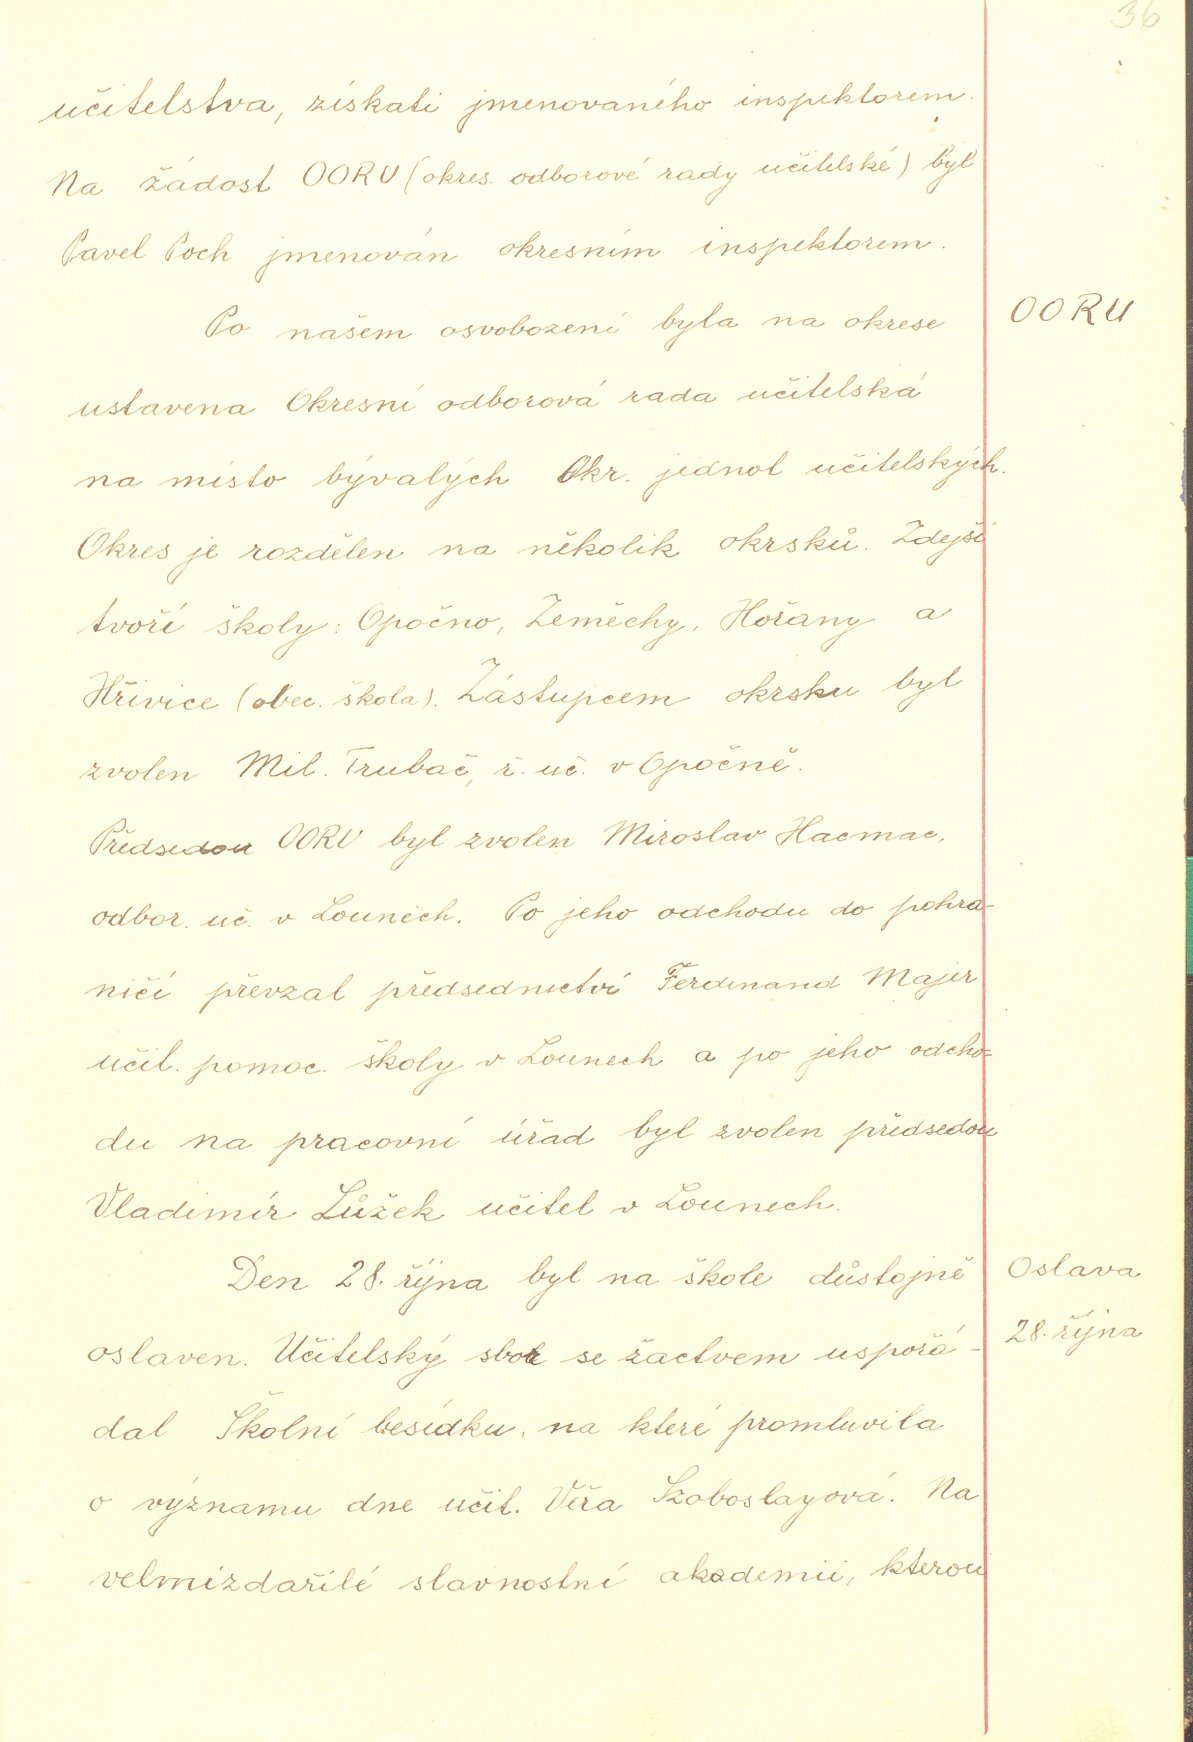 36
učitelstva, získati jmenovaného inspektorem.
Na žádost OORU (okres. odborové rady učitelské) byl
Pavel Poch jmenován okresním inspektorem.
Po našem osvobození byla na okrese
OORU
ustavena Okresní odborová rada učitelská
na místo bývalých Okr. jednot učitelských.
Okres je rozdělen na několik okrsků. Zdejší
tvoří školy: Opočno, Zeměchy, Hořany a
Hřivice (obec. škola). Zástupcem okrsku byl
zvolen Mil. Trubač, ř. uč. v Opočně.
Předsedou OORU byl zvolen Miroslav Hacmac,
odbor. uč. v Lounech. Po jeho odchodu do pohra-
ničí převzal předsednictví Ferdinand Majer
učit. pomoc. školy v Lounech a po jeho odcho-
du na pracovní úřad byl zvolen předsedou
Vladimír Lůžek učitel v Lounech.
Den 28. října byl na škole důstojně
Oslava
28. října
oslaven. Učitelský sbor se žactvem uspořá-
dal školní besídku, na které promluvila
o významu dne učit. Věra Szoboslayová. Na
velmi zdařilé slavnostní akademii, kterou